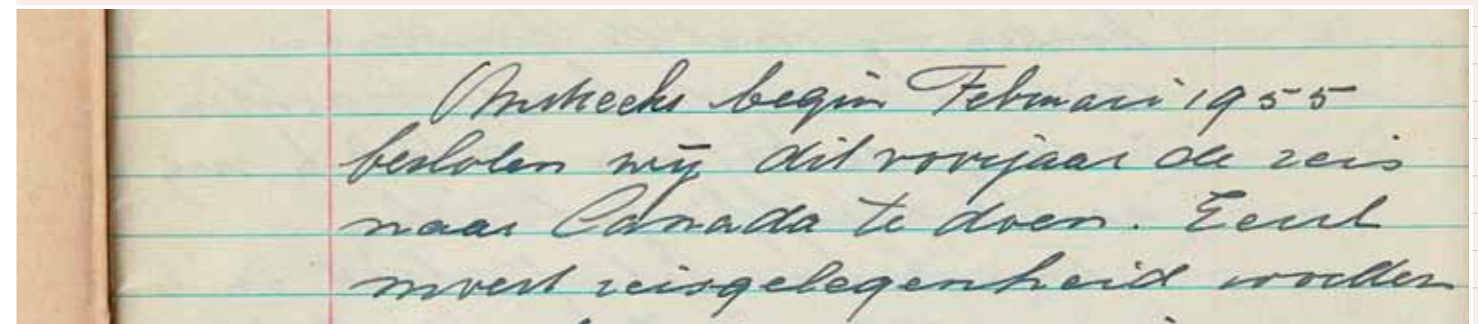 Omstreeks begin Februari 1955
besloten wij dit voorjaar de reis
naar Canada te doen. Eerst
moest reisgelegenheid worden